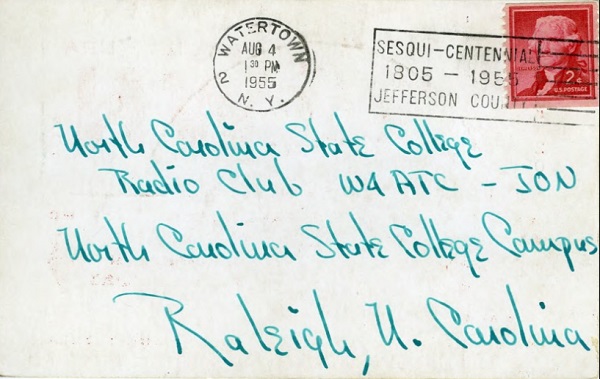 WATERTOWN
AUG 4
1 30 PM
1955
2 N. Y.
SESQUI-CENTENNIAL
1805 - 1955
JEFFERSON COUNTY
2¢
U.S. POSTAGE
North Carolina State College
Radio Club W4ATC - JON
North Carolina State College Campus
Raleigh, N. Carolina